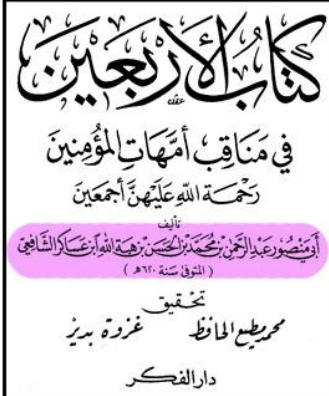 كتاب الأربعين
في مناقب أمهات المؤمنين
رحمة الله عليهن أجمعين
تأليف
أبي منصور عبد الرحمن بن محمد بن الحسن بن هبة الله ابن عساكر الشافعي
( المتوفى سنة ٦٢٠هـ )
تحقيق
محمد مطيع الحافظ غزوة بدير
دار الفكر